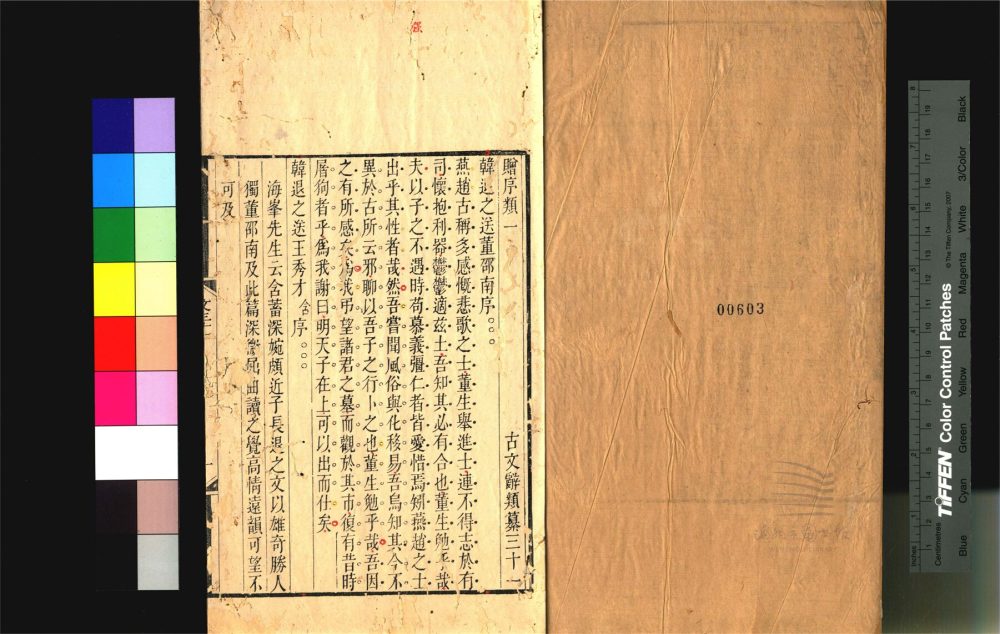 贈序類一　古文辭類纂三十一
韓退之送董邵南序。。。
燕趙古稱多感慨悲歌之士董生舉進士連不得志於有
司懷抱利器鬱鬱適茲土吾知其必有合也董生勉乎哉
夫以子之不遇時苟慕義彊仁者皆愛惜焉矧燕趙之士
出乎其性者哉然吾嘗聞風俗與化移易吾烏知其今不
異於古所云邪聊以吾子之行卜之也董生勉乎哉吾因
之有所感矣為我弔望諸君之墓而觀於其市復有昔時
屠狗者乎爲我謝曰明天子在上可以出而仕矣
韓退之送王秀才含序。。。
海峯先生云含蓄深婉頗近子長退之文以雄奇勝人
獨董邵南及此篇深微屈曲讀之覺高情遠韻可望不
可及
00603
TIFFEN Color Control Patches
© The Tiffen Company, 2007
Inches
Centimetres
Blue Cyan Green Yellow Red Magenta White 3/Color Black